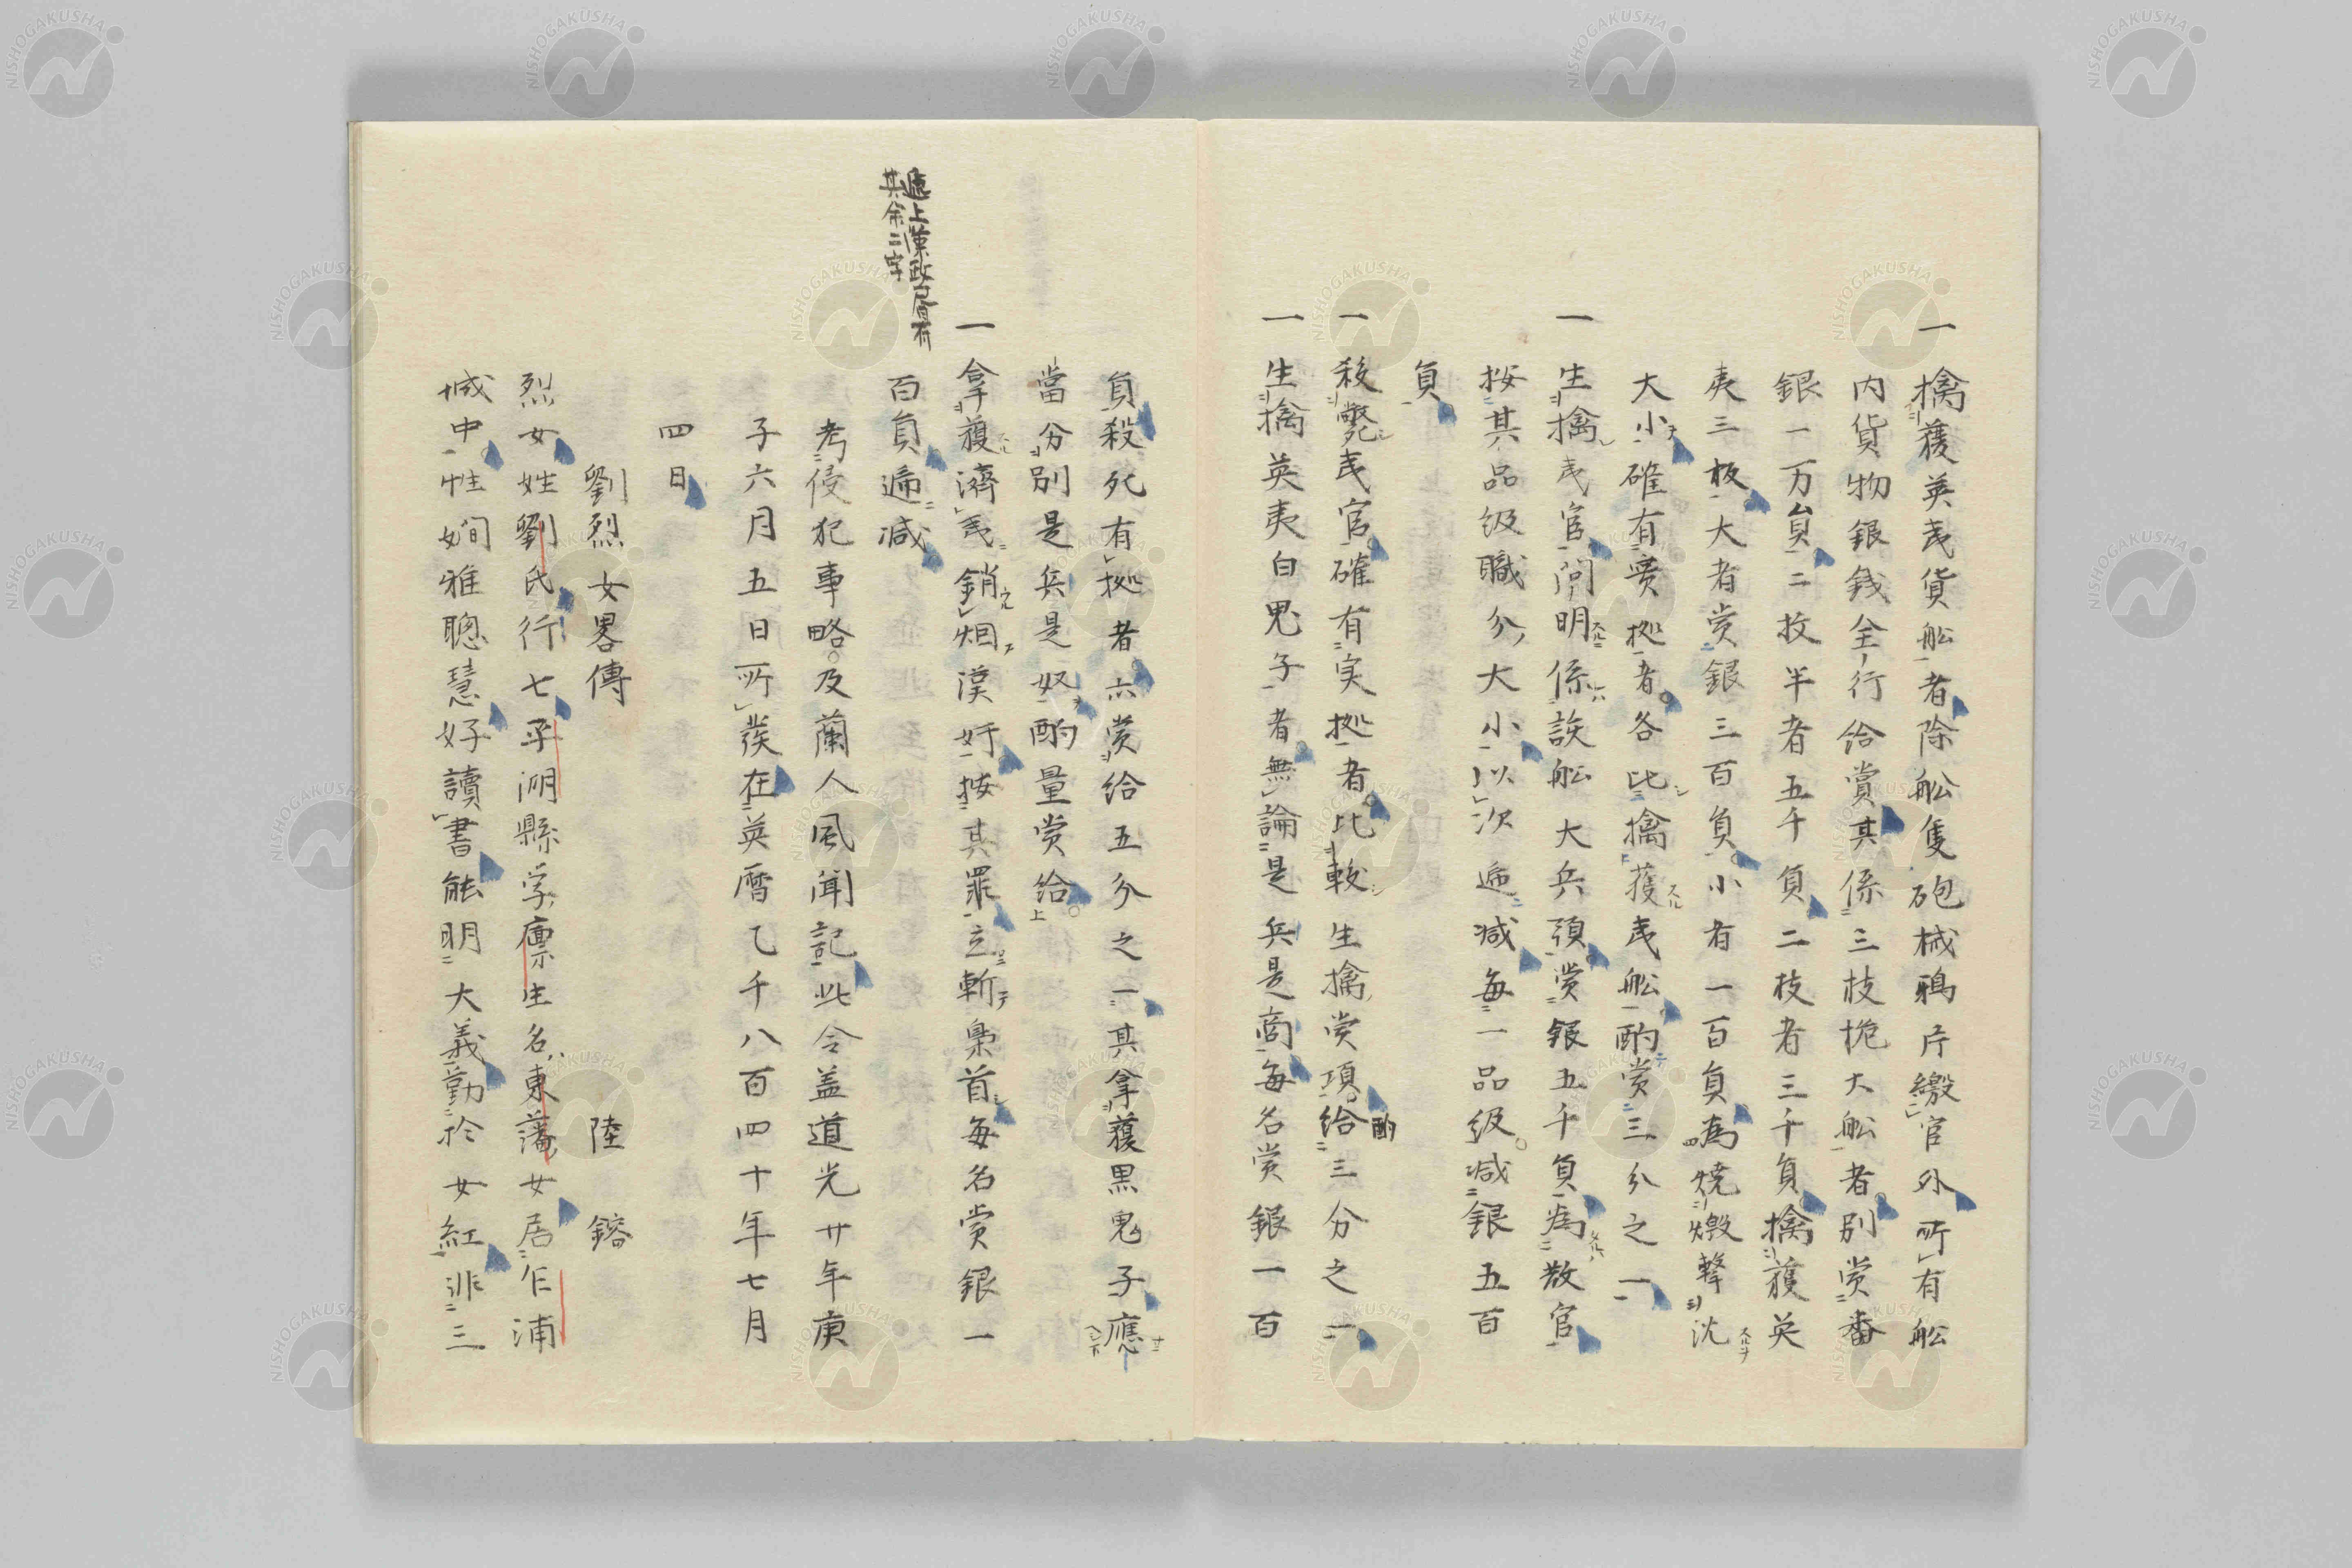 一擒獲英夷貨舩者除舩隻砲械鴉片繳官外所有舩
内貨物銀銭全行給賞其係三枝桅大舩者別賞番
銀一万負二枚半者五千負二枝者三千負擒獲英
夷三板大者賞銀三百負小者一百負為焼燬撃沈
大小確有実拠者各比擒獲夷舩酌賞三分之一
一生擒夷官問明係該舩大兵頭賞銀五千負為散官
按其品级職分大小以次逓减每一品级减銀五百
負
一殺斃夷官確有実拠者比較生擒賞項給三分之一
酌
一生擒英夷白鬼子者無論是兵是商每名賞銀一百
負殺死有拠者六賞給五分之一其拿獲黒鬼子應
當分別是兵是奴酌量賞給
一拿獲濟夷銷烟漢奸按其罪立斬梟首每名賞銀一
百負逓减
逓上漢政层有
其余二字
考侵犯事略及蘭人風聞記此令盖道光廿年庚
子六月五日所發在英暦乙千八百四十年七月
四日
劉烈女畧傳
陸鎔
烈女姓劉氏行七平湖縣学廪生名東藩女居乍浦
城中性嫻雅聰慧好讀書能明大義勤於女紅非三
NISHOGAKUSHA